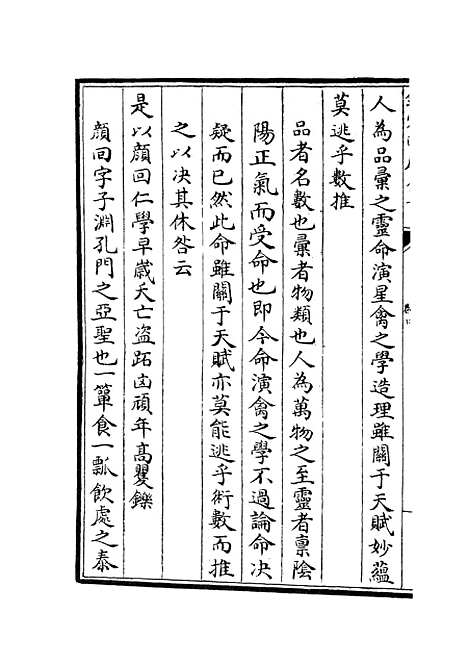 人為品彙之靈命演星禽之學造理雖關于天賦妙蘊
莫逃乎數推
品者名數也彙者物類也人為萬物之至靈者禀陰
陽正氣而受命也即今命演禽之學不過論命决
疑而已然此命雖關于天賦亦莫能逃乎術數而推
之以决其休咎云
是以顔回仁學早嵗夭亡盗跖凶頑年髙矍鑠
顔回字子淵孔門之亞聖也一簞食一瓢飲處之泰